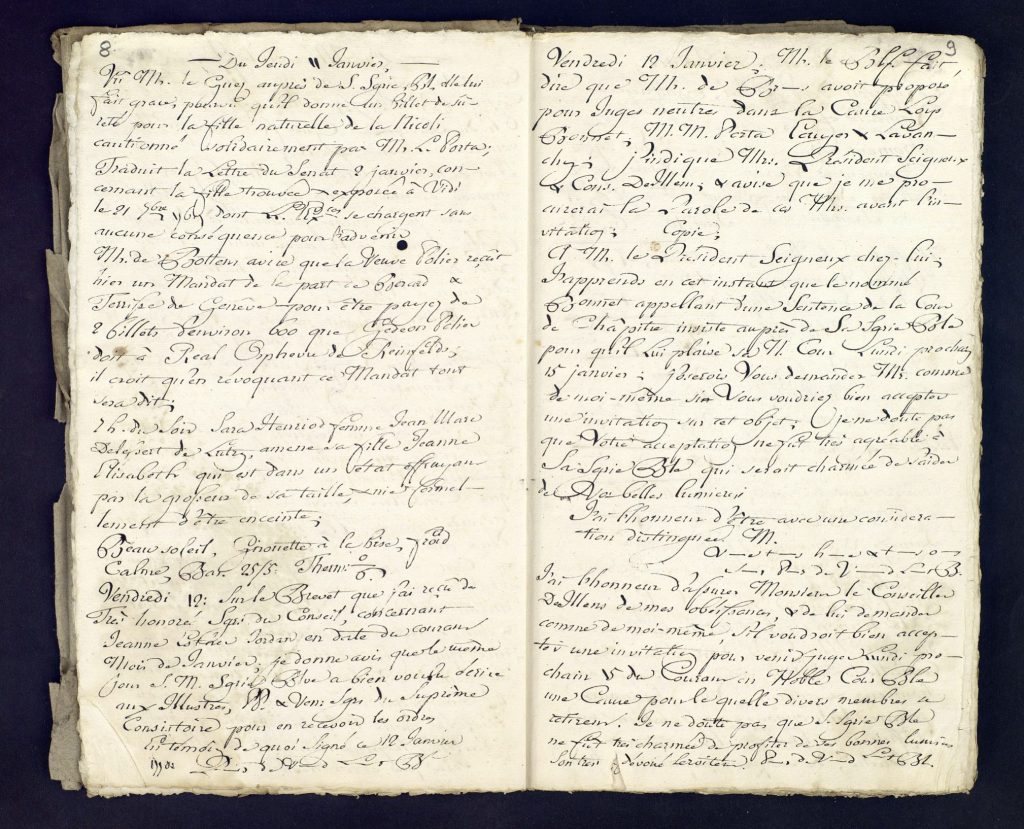 8
Du Jeudi 11 Janvier,
Vu Mr. le Guey auprès de S. Sgie, Bl. Elle lui
fait grace, pourvu qu'il donne un billet de su-
reté pour la fille naturelle de la Nicoli
cautionné solidairement par Mr. L. Porta;
Traduit la Lettre du Senat 2 janvier, con-
cernant la fille trouvée & exposée à Vidi
le 21 7bre dont se chargent sans
aucune conséquence pour l'advenir
Mr. de Bottens avise que la Veuve Pelier reçut
hier un Mandat de la part de &
de Genève pour être payez de
2 billets d'environ 600 que Gédeon Pelier
doit à Real Orphevre de Reinfelds;
il croit qu'en révoquant ce Mandat tout
sera dit;
7 h. du Soir Sara Henriod femme Jean Marc
Delessert de Lutry, amene sa fille Jeanne
Elisabeth qui est dans un état effrayant
par la grosseur de sa taille & nie formel-
lement d'être enceinte;
Beau soleil, Girouette à la bise, froid
Calme, Bar. 25/5: Therm:
Vendredi 12: Sur le Brevet que j'ai reçu de
Très honoré Sgrs du Conseil, concernant
Jeanne Jordan en date du courant
Mois de Janvier, je donne avis que le meme
jour S. M. Sgrie B a bien voulu écrire
aux Illustres, & Vens Sgrs du Suprême
Consistoire pour en recevoir les ordres
En temoin de quoi signé ce 12 Janvier
9
Vendredi 12 Janvier, Mr. le fait
dire que Mr. de avoit proposé
pour Juges neutres dans la Cause Loys
Bonnet, M. M. Porta & Lavan-
chy; j'indique Mrs. Président Seigneux
& Cons. DesMens, & avise que je me pro-
curerai la Parole de ces Mrs. avant l'in-
vitation; Copie;
A Mr. le Président Seigneux chez lui;
J'apprends en cet instant que le nommé
Bonnet appellant d'une Sentence de la Cour
de Chapitre insiste auprès de Sa Sgrie Ble
pour qu'il lui plaise sa N. Cour Lundi prochain
15 janvier; j'oserois Vous demander Mr. comme
de moi-même si Vous voudriez bien accepter
une invitation sur cet objet; je ne doute pas
que Votre acceptation ne fut très agréable à
Sa Sgrie Ble qui serait charmée de s'aider
de Vos belles lumieres
J'ai l'honneur d'être avec une considera-
tion distinguée M.
J'ai l'honneur d'assurer Monsieur le Conseiller
DesMens de mes obéissances, & de lui demander
comme de moi-même, s'il voudroit bien accep-
ter une invitation pour venir juger Lundi pro-
chain 15 du Courant en Noble Cour Ble
une Cause pour le quelle divers membres se
retirent. Je ne doute pas que S. Sgrie Ble
ne fut très charmée de profiter de ses bonnes lumieres
Son tres dévoué serviteur.